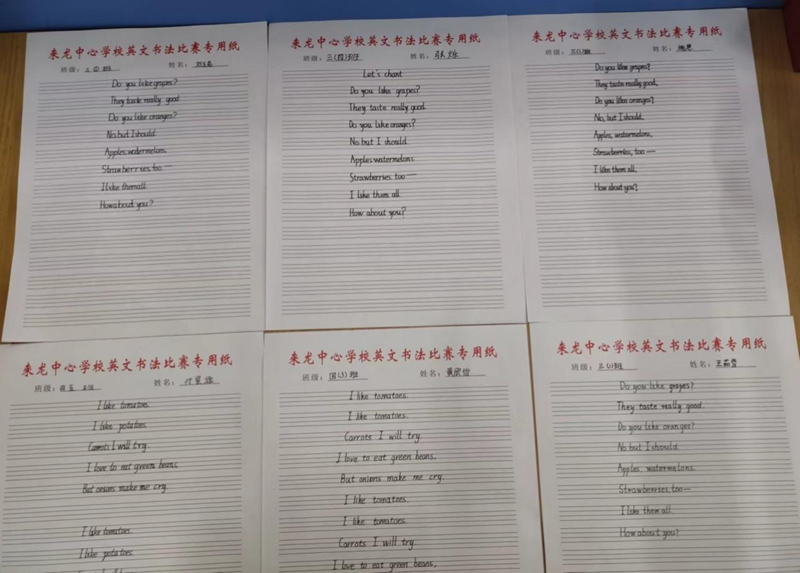 来龙中心学校英文书法比赛专用纸
班级: 三 班 姓名:
Do you like grapes?
They taste really good
Do you like oranges?
No but I should
Apples watermelons.
Strawberries too—
I like them all
How about you?
来龙中心学校英文书法比赛专用纸
班级: 三(四)班 姓名:
Let's chant
Do you like grapes?
They taste really good
Do you like oranges?
No but I should
Apples watermelons
Strawberries too—
I like them all
How about you?
来龙中心学校英文书法比赛专用纸
班级: 姓名:
Do you like grapes?
They taste really good,
Do you like oranges?
No, but I should,
Apples, watermelons,
Strawberries, too—
I like them all,
How about you?
来龙中心学校英文书法比赛专用纸
班级: 姓名:
I like tomatoes.
I like potatoes.
Carrots I will try.
I love to eat green beans.
But onions make me cry.
I like tomatoes.
I like potatoes
来龙中心学校英文书法比赛专用纸
班级: 姓名:
I like tomatoes.
I like tomatoes.
Carrots I will try.
I love to eat green beans,
But onions make me cry.
I like tomatoes.
I like tomatoes.
Carrots I will try.
I love to eat green beans,
来龙中心学校英文书法比赛专用纸
班级: 姓名:
Do you like grapes?
They taste really good.
Do you like oranges?
No but I should.
Apples, watermelons.
Strawberries, too—
I like them all.
How about you?